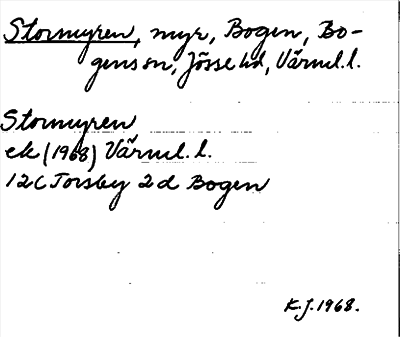 Stormyren, myr, Bogen, Bo-
gens sn, Jösse hd, Värml. l.
Stormyren
ek (1968) Värml. l.
12C Torsby 2d Bogen
K.J. 1968.